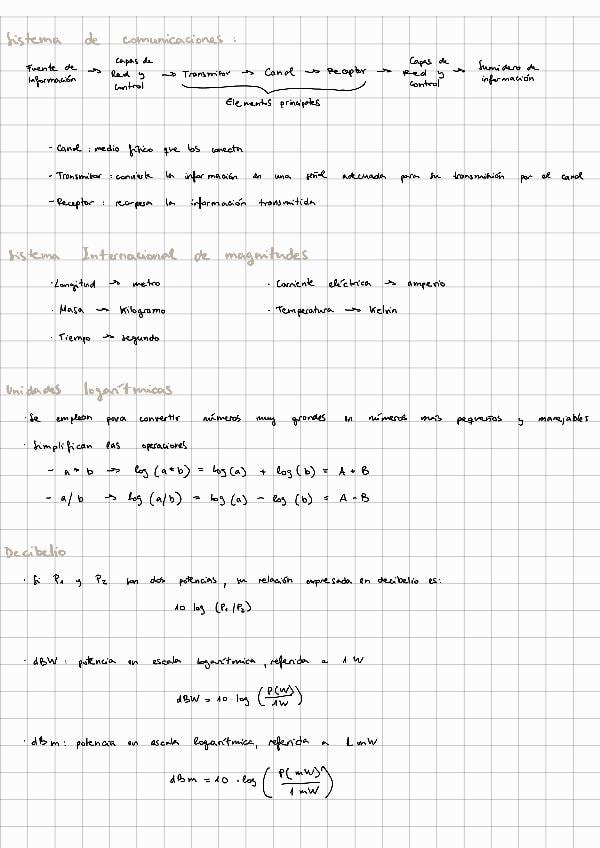 Sistema de comunicaciones :
Fuente de información → Capas de Red y Control → Transmitor → Canal → Receptor → Capas de Red y Control → Sumidero de información
Elementos principales
- Canal : medio físico que los conecta
- Transmitor : convierte la información en una señal adecuada para su transmisión por el canal
- Receptor : recupera la información transmitida
Sistema Internacional de magnitudes
· Longitud → metro
· Masa → Kilogramo
· Tiempo → segundo
· Corriente eléctrica → amperio
· Temperatura → Kelvin
Unidades logarítmicas
· Se emplean para convertir números muy grandes en números más pequeños y manejables
· Simplifican las operaciones
- a * b → log (a * b) = log (a) + log (b) = A + B
- a / b → log (a/b) = log (a) - log (b) = A - B
Decibelio
· Si P₁ y P₂ son dos potencias, su relación expresada en decibelio es:
10 log (P₁/P₂)
· dBW : potencia en escala logarítmica, referida a 1 W
dBW = 10 · log (P(W)/1W)
· dBm : potencia en escala logarítmica, referida a 1 mW
dBm = 10 · log (P(mW)/1mW)